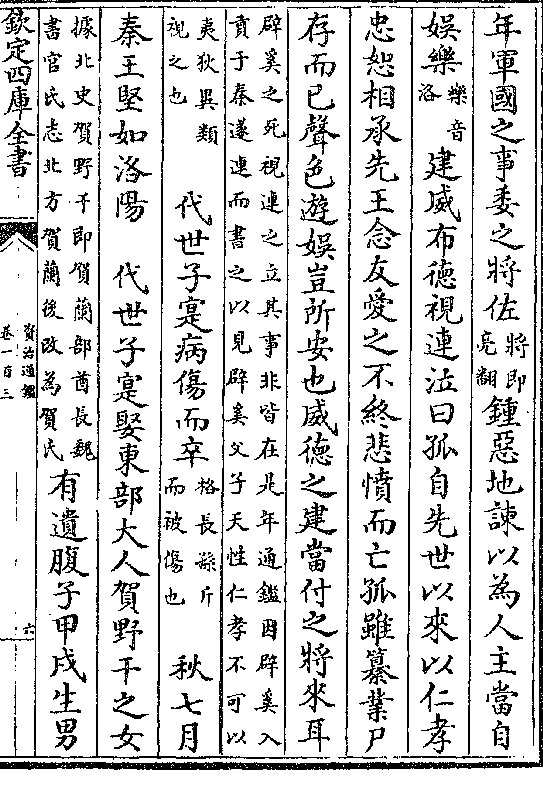 年軍國之事委之將佐將即亮翻鍾惡地諫以為人主當自
娛樂樂音洛建威布徳視連泣曰孤自先世以來以仁孝
忠恕相承先王念友愛之不終悲憤而亡孤雖纂業尸
存而已聲色遊娛豈所安也威徳之建當付之將來耳
辟奚之死視連之立其事非皆在是年通鑑因辟奚入
貢于秦遂連而書之以見辟奚父子天性仁孝不可以
夷狄異類視之也 代世子寔病傷而卒格長孫斤而被傷也 秋七月
秦王堅如洛陽 代世子寔娶東部大人賀野干之女
據北史賀野干即賀蘭部酋長魏書官氏志北方賀蘭後改為賀氏有遺腹子甲戌生男
欽定四庫全書
資治通鑑
卷一百三
六